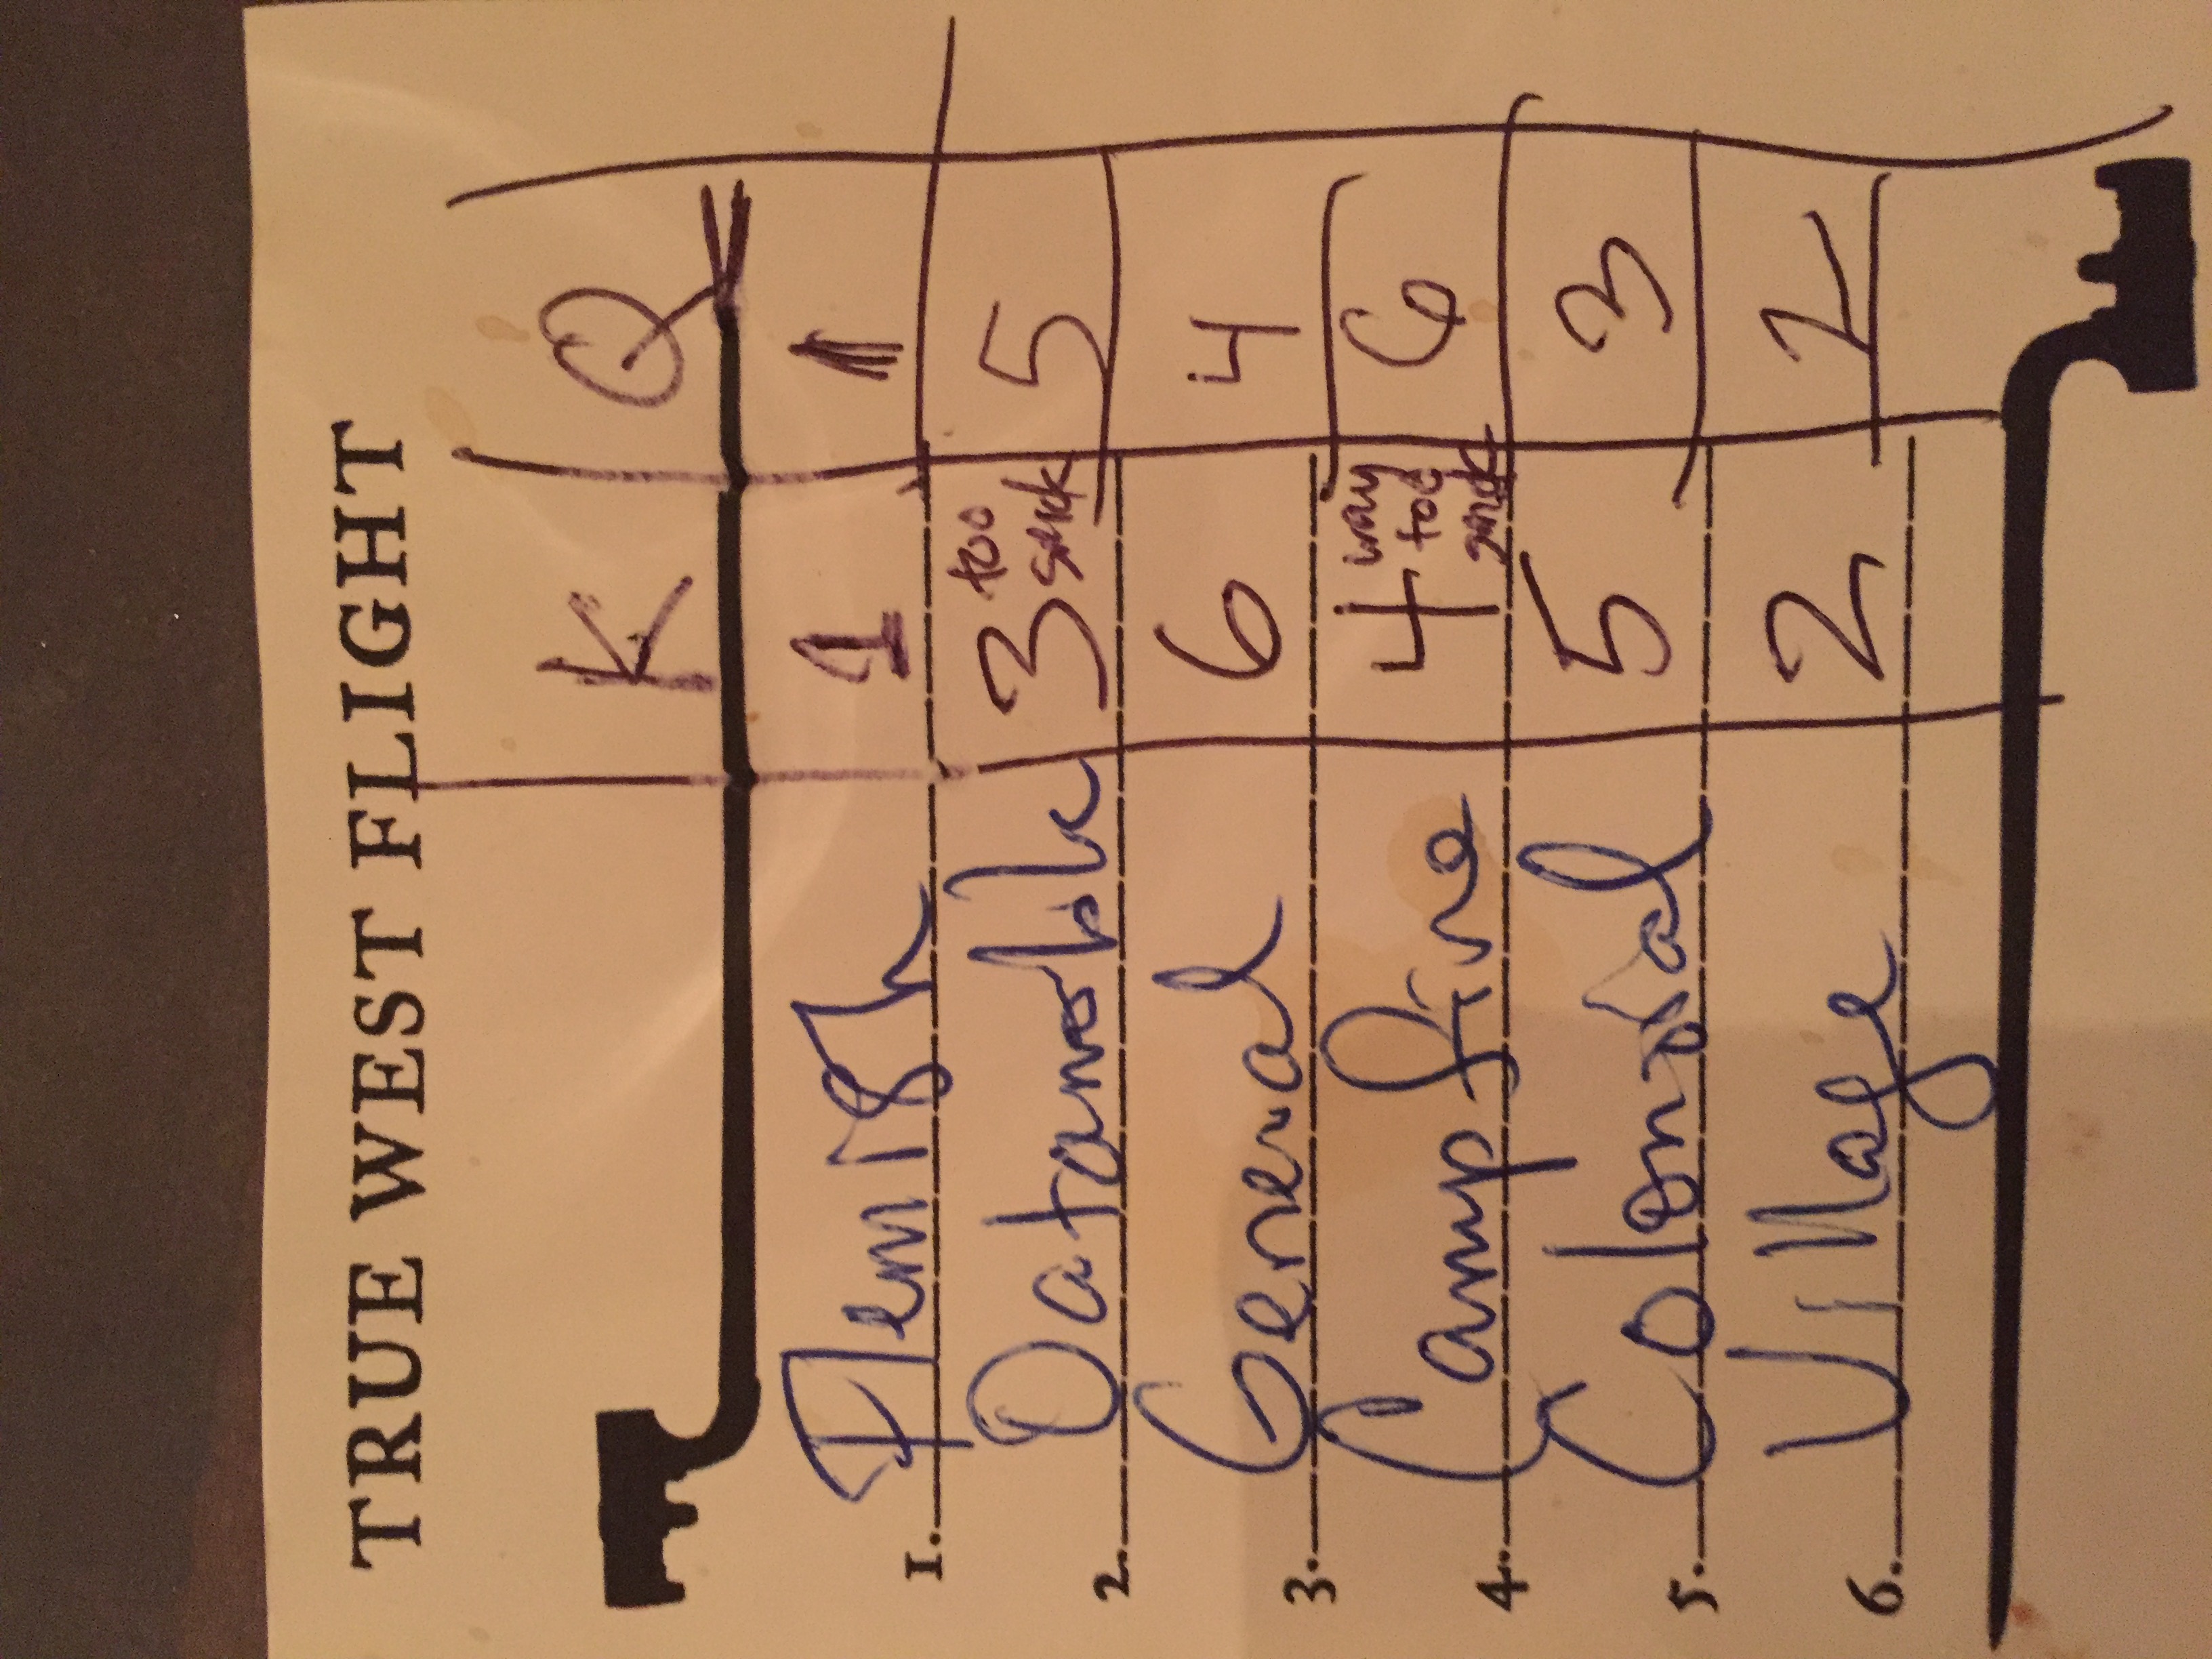 TRUE WEST FLIGHT
K Q
1. Flemish 1 1
2. 3 too 5
3. General 6 4
4. Campfire 4 way too 6
5. Colonial 5 3
6. Village 2 2